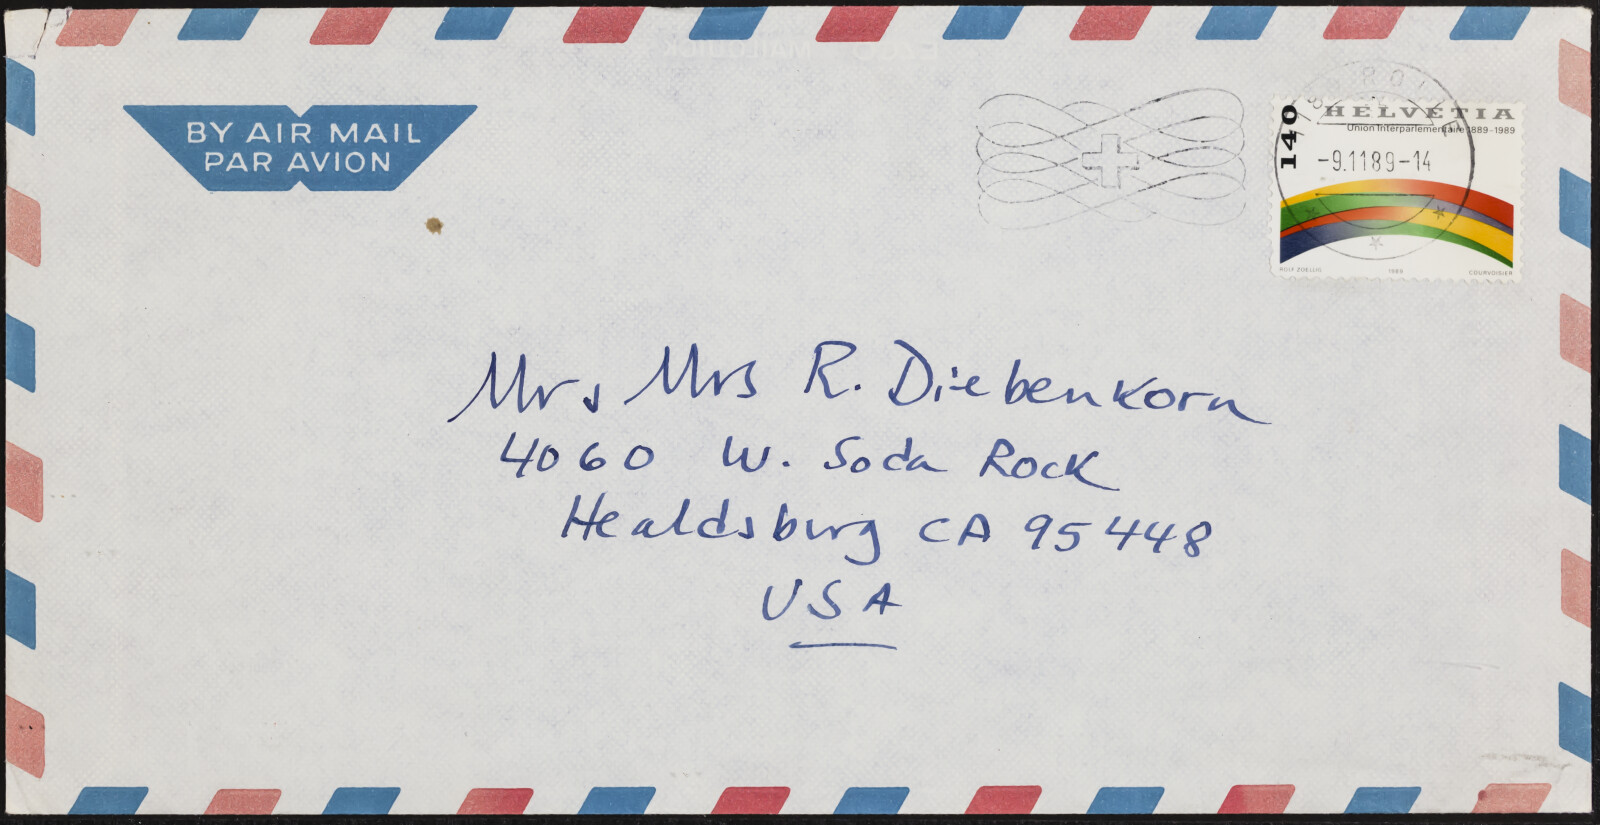 BY AIR MAIL
PAR AVION
140
HELVETIA
Union Interparlementaire 1889-1989
-9.1189-14
ROLF ZOELLIG 1989 COURVOISIER
Mr, Mrs R. Diebenkorn
4060 W. Soda Rock
Healdsburg CA 95448
USA